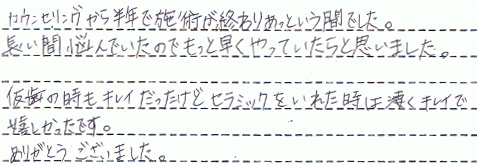 カウンセリングから半年で施術が終わりあっという間でした。
長い間悩んでいたのでもっと早くやっていたらと思いました。
仮歯の時もキレイだったけどセラミックをいれた時は凄くキレイで
嬉しかったです。
ありがとうございました。